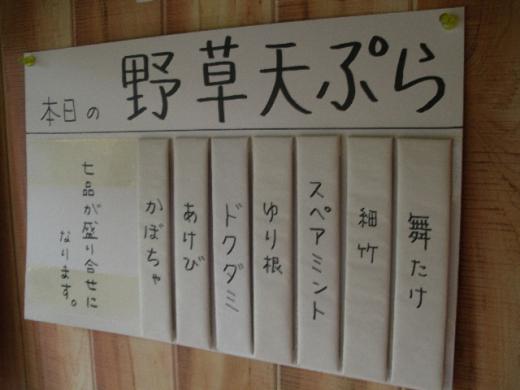 本日の 野草天ぷら
舞たけ
細竹
スペアミント
ゆり根
ドクダミ
あけび
かぼちゃ
七品が盛り合せに
なります。